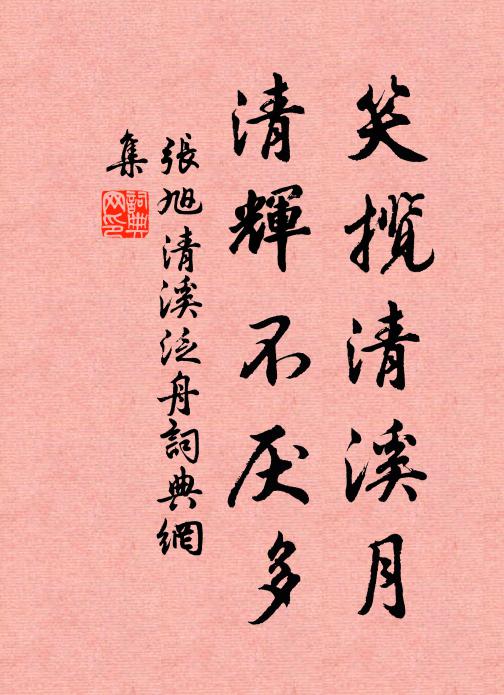 笑揽清溪月
清輝不厌多
張旭清溪泛舟詞典網
集
詞典網印